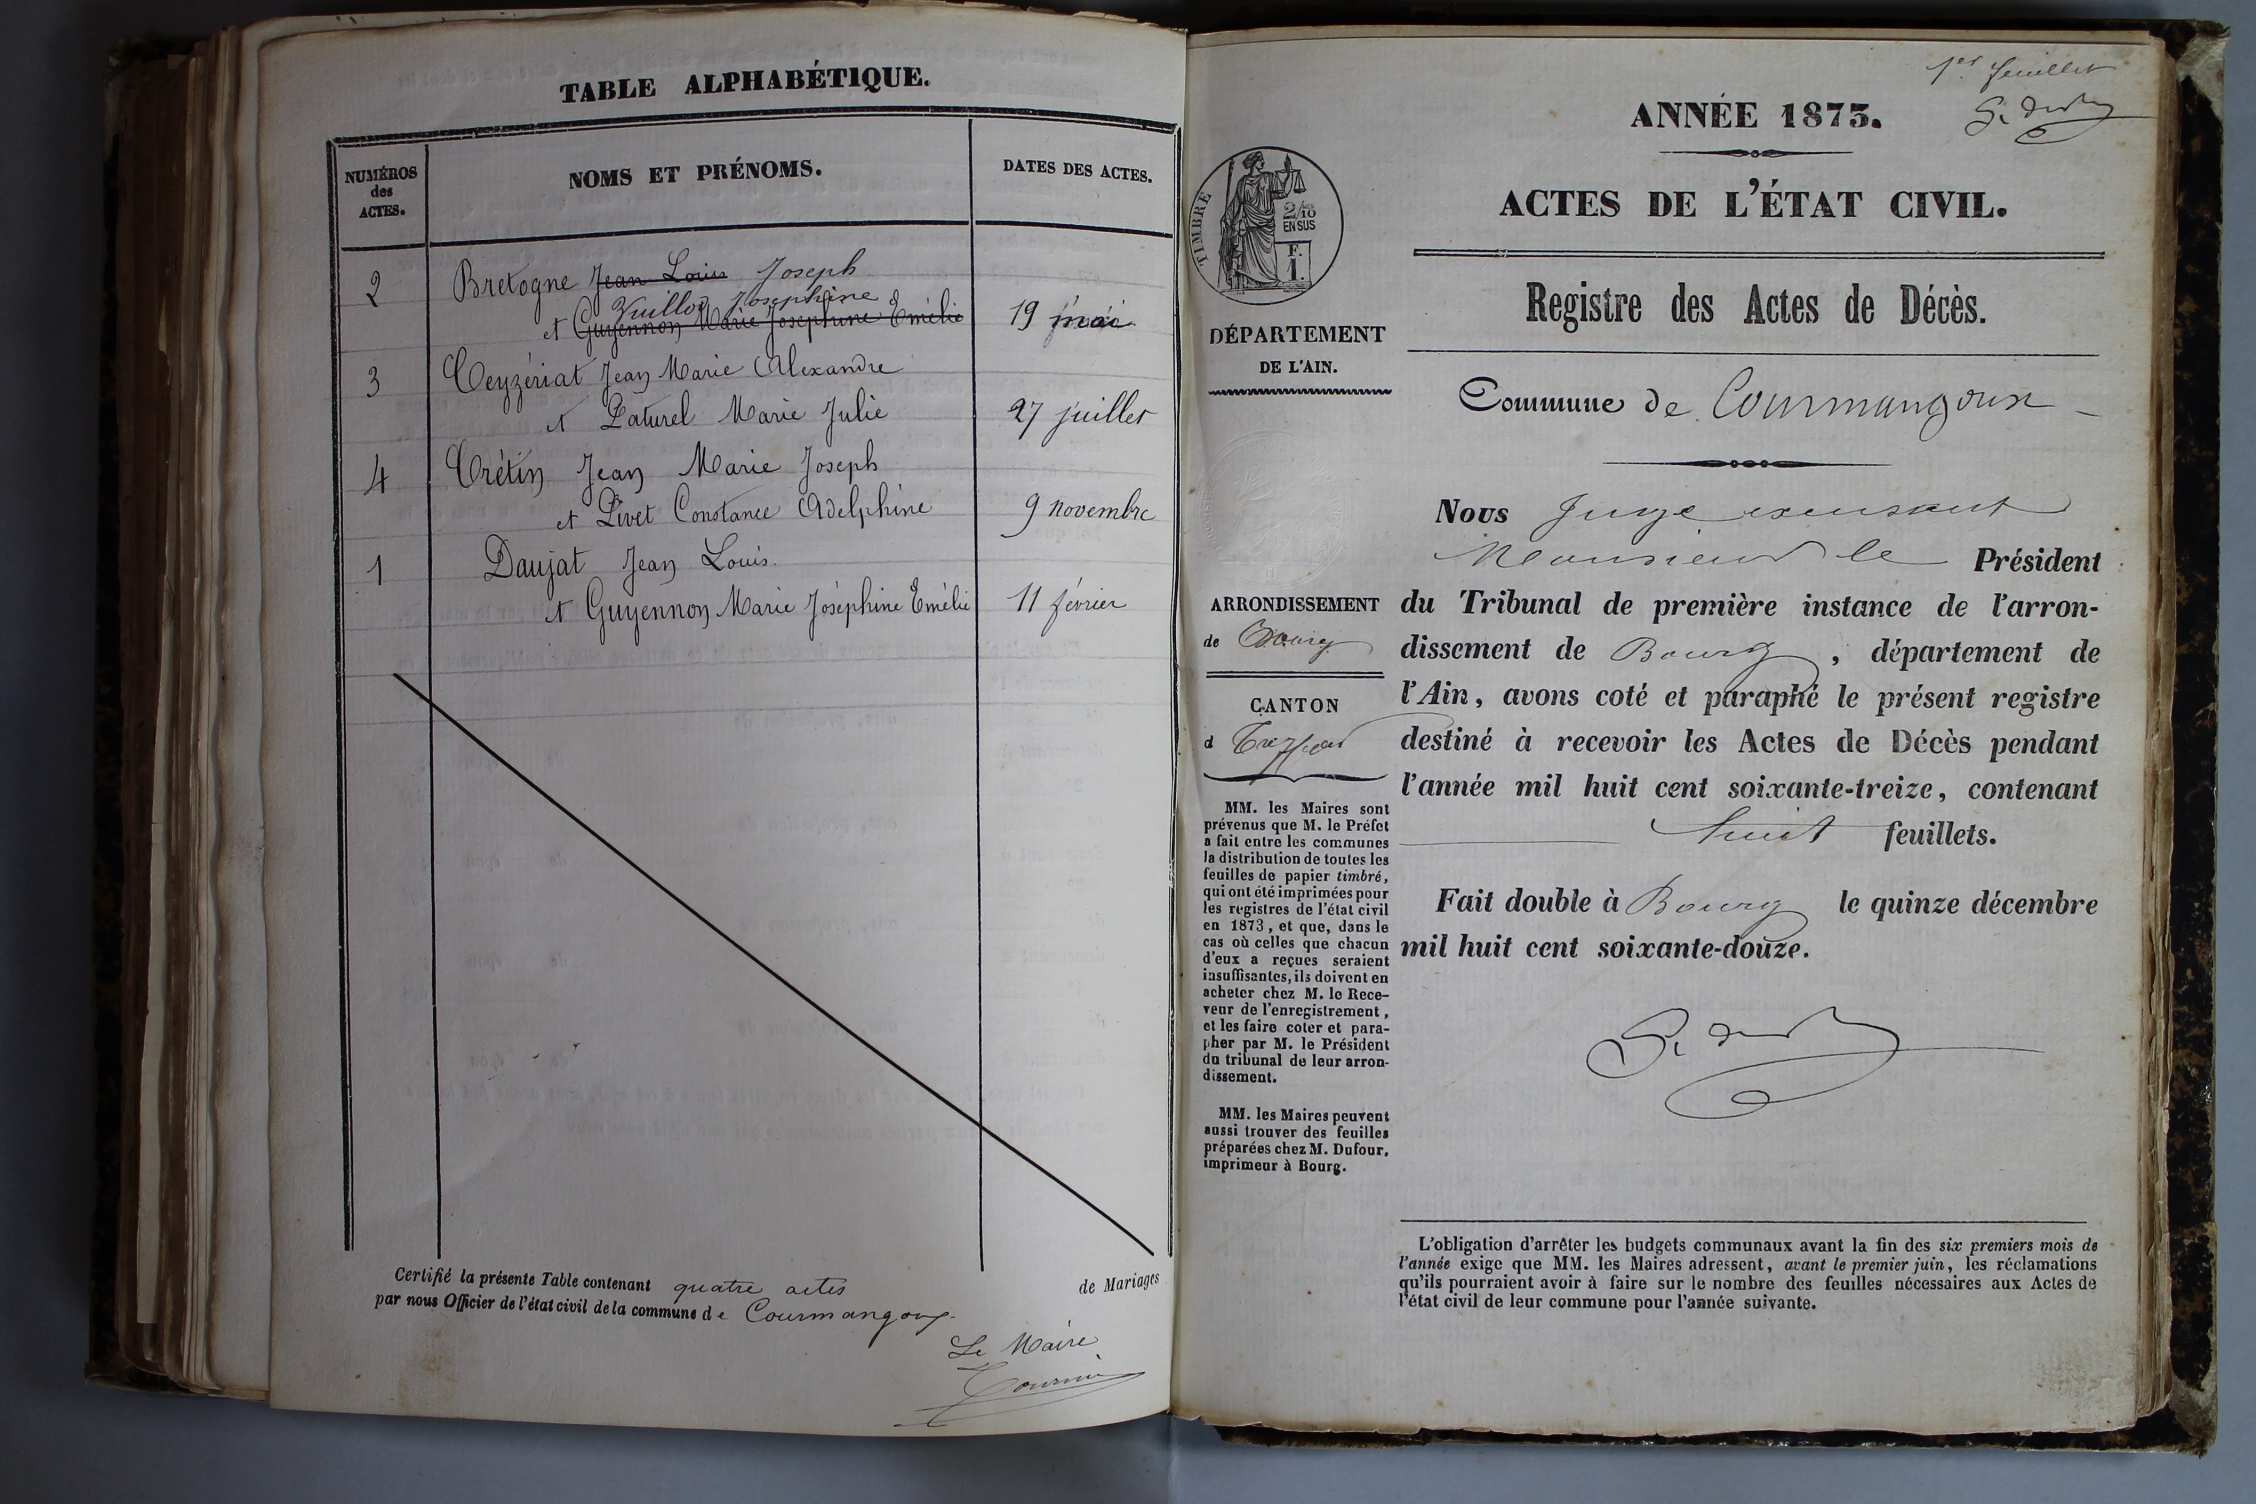 TABLE ALPHABÉTIQUE.
NUMÉROS
des
ACTES.
NOMS ET PRÉNOMS.
DATES DES ACTES.
2 Bretogne Jean Louis Joseph
Vuillod Josephine
et Guyennon Marie Josephine Emélie 19 mai
3 Ceyzériat Jean Marie Alexandre
et Paturel Marie Julie 27 juillet
4 Crétin Jean Marie Joseph
et Livet Constance Adelphine 9 novembre
1 Daujat Jean Louis.
et Guyennon Marie Joséphine Emélie 11 février
Certifié la présente Table contenant quatre actes de Mariages
par nous Officier de l'état civil de la commune de Courmangoux.
Le Maire
1er feuillet
ANNÉE 1873.
ACTES DE L'ÉTAT CIVIL.
Registre des Actes de Décès.
Commune de Courmangoux
TIMBRE
2/10
EN SUS
F.
1.
DÉPARTEMENT
DE L'AIN.
ARRONDISSEMENT
de Bourg
CANTON
d Treffort
MM. les Maires sont
prévenus que M. le Préfet
a fait entre les communes
la distribution de toutes les
feuilles de papier timbré,
qui ont été imprimées pour
les registres de l'état civil
en 1873, et que, dans le
cas où celles que chacun
d'eux a reçues seraient
insuffisantes, ils doivent en
acheter chez M. le Rece-
veur de l'enregistrement,
et les faire coter et para-
pher par M. le Président
du tribunal de leur arron-
dissement.
MM. les Maires peuvent
aussi trouver des feuilles
préparées chez M. Dufour,
imprimeur à Bourg.
Nous Juge excusant
Monsieur le Président
du Tribunal de première instance de l'arron-
dissement de Bourg, département de
l'Ain, avons coté et paraphé le présent registre
destiné à recevoir les Actes de Décès pendant
l'année mil huit cent soixante-treize, contenant
huit feuillets.
Fait double à Bourg le quinze décembre
mil huit cent soixante-douze.
L'obligation d'arrêter les budgets communaux avant la fin des six premiers mois de
l'année exige que MM. les Maires adressent, avant le premier juin, les réclamations
qu'ils pourraient avoir à faire sur le nombre des feuilles nécessaires aux Actes de
l'état civil de leur commune pour l'année suivante.